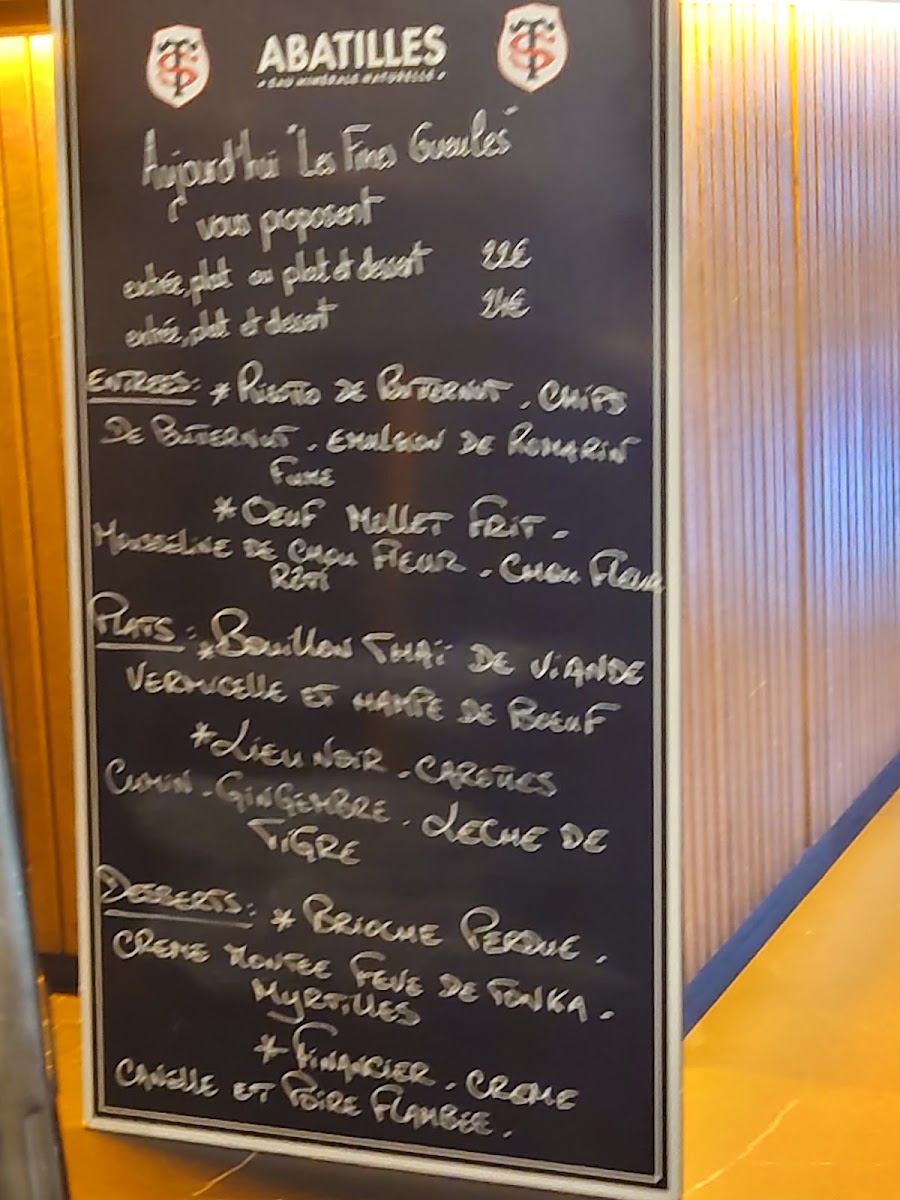 ABATILLES
EAU MINÉRALE NATURELLE
Aujourd'hui "Les Fines Gueules"
vous proposent
entrée, plat ou plat et dessert 22€
entrée, plat et dessert 24€
ENTREES: * RISOTTO DE BUTTERNUT. CHIPS
DE BUTTERNUT. EMULSION DE ROMARIN
FUME
* OEUF MOLLET FRIT.
MOUSSELINE DE CHOU FLEUR. CHOU FLEUR
RÔTI
PLATS: * BOUILLON THAÏ DE VIANDE
VERMICELLE ET HAMPE DE BOEUF
* LIEU NOIR. CAROTTES
CUMIN. GINGEMBRE. LECHE DE
TIGRE
DESSERTS: * BRIOCHE PERDUE.
CREME MONTEE FEVE DE TONKA.
MYRTILLES
* FINANCIER. CREME
CANELLE ET POIRE FLAMBEE.